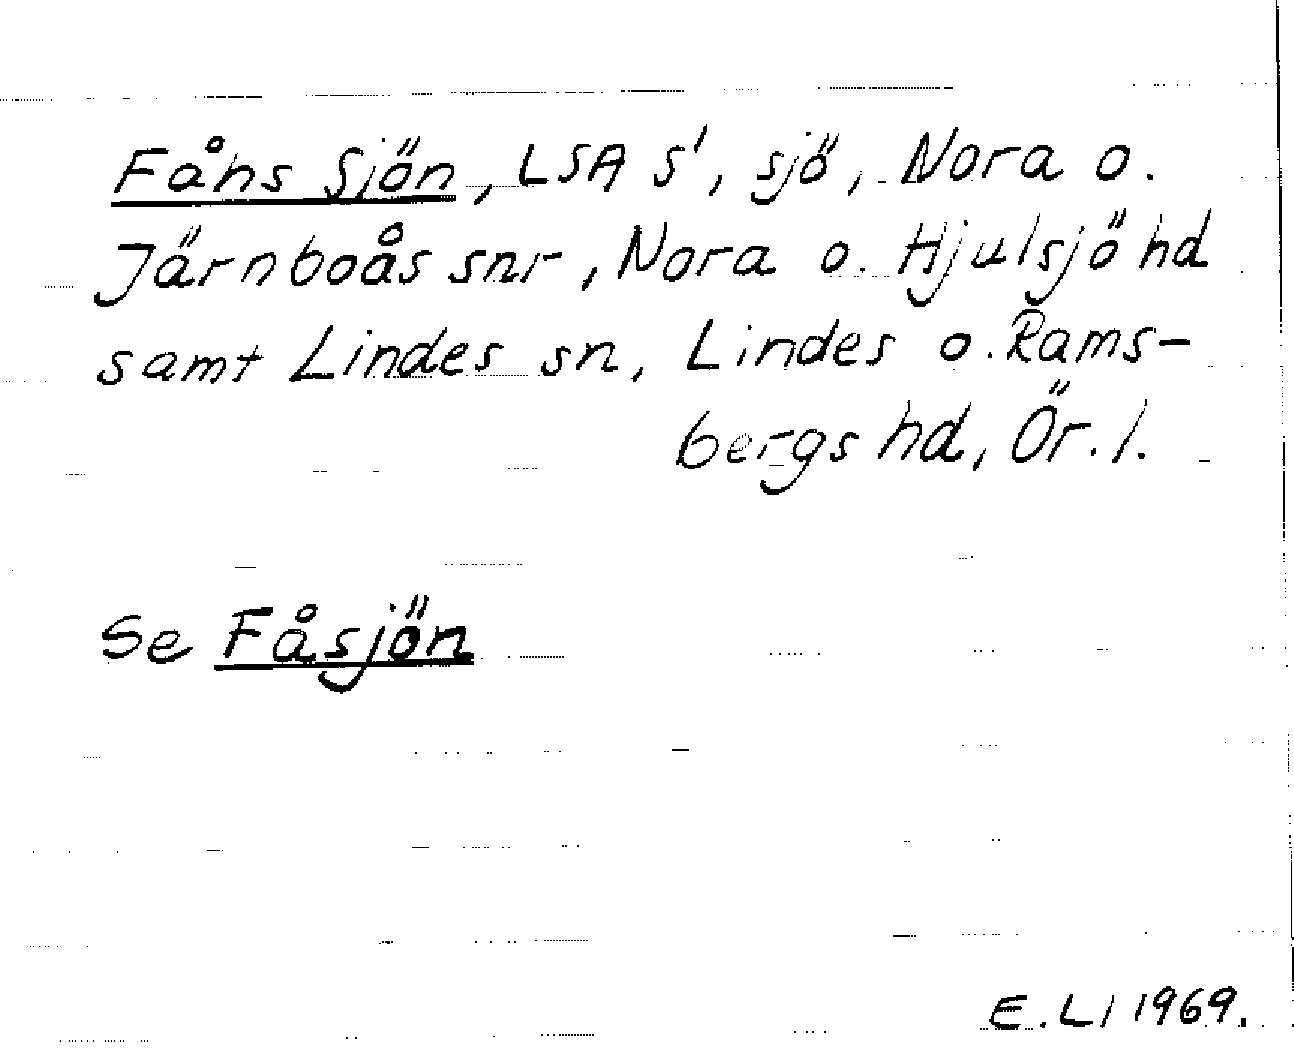 Fåhs Sjön, LSA S', sjö, Nora o.
Järnboås snr, Nora o. Hjulsjö hd
samt Lindes sn, Lindes o. Rams-
bergs hd, Ör. l.
Se Fåsjön
E. Ll 1969.